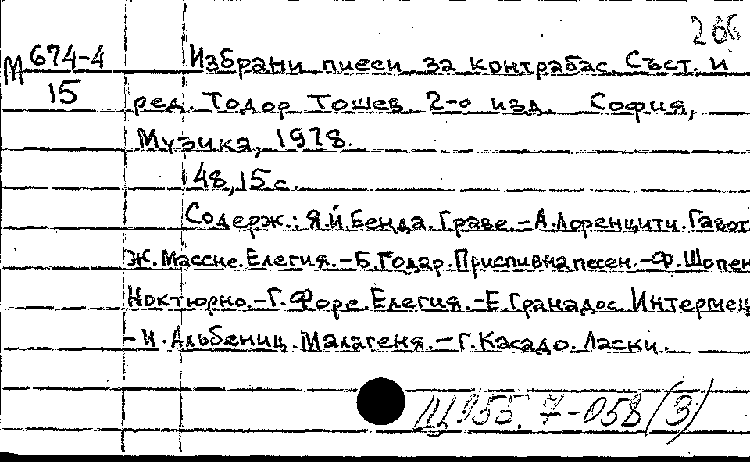 266
М 674-4 Избрани пиеси за контрабас. Съст. и
15 ред. Тодор Тошев. 2-о изд. София,
Музика, 1978.
48, 15 с.
Содерж.: Я.Й.Бенда. Граве. – А.Лоренцити. Гавот
Ж.Массне. Елегия. – Б.Годар. Приспивна песен. – Ф.Шопен
Ноктюрно. – Г.Форе. Елегия. – Е.Гранадос. Интермец
– И.Альбениц. Малагеня. – Г.Касадо. Ласки.
955. 7-058 (3)